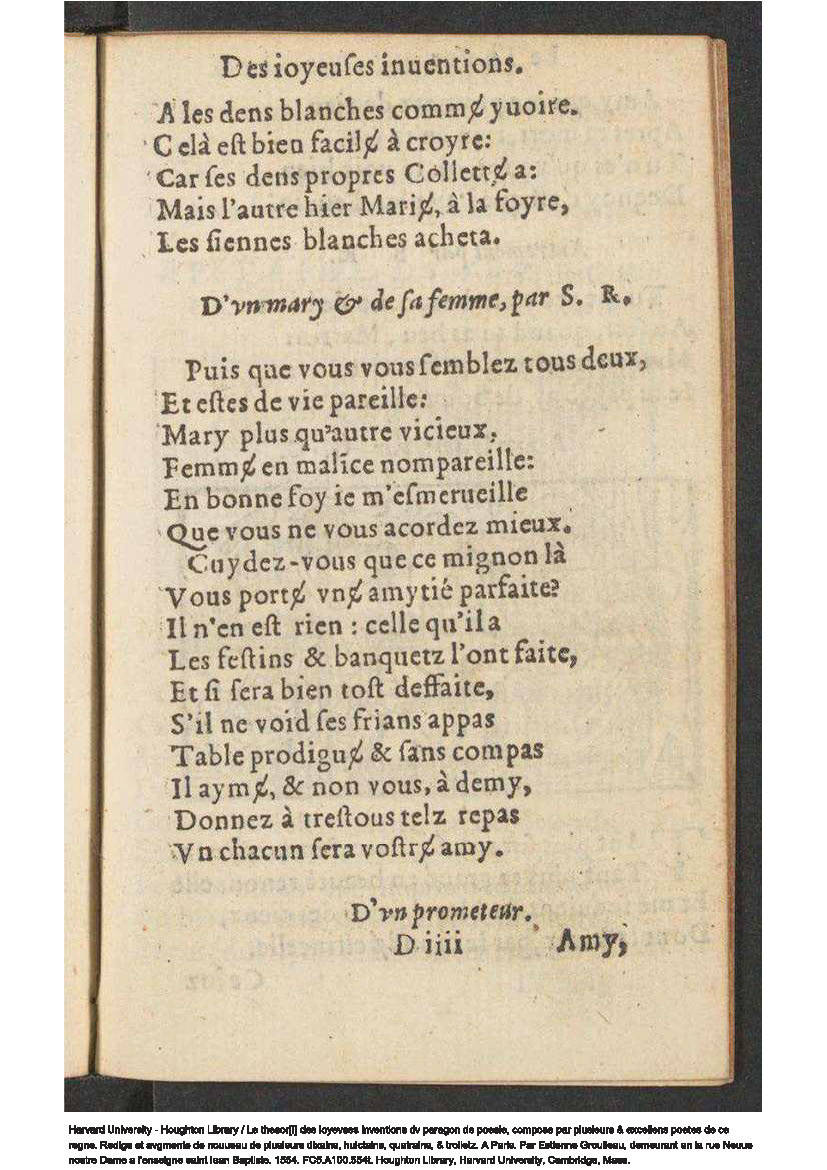 Des ioyeuſes inuentions.
A les dens blanches commɇ yuoire.
Celà eſt bien facilɇ à croyre:
Car ſes dens propres Collettɇ a:
Mais l'autre hier Mariɇ, à la foyre,
Les ſiennes blanches acheta.
D'vn mary & de ſa femme, par S. R.
Puis que vous vous ſemblez tous deux,
Et eſtes de vie pareille:
Mary plus qu'autre vicieux,
Femmɇ en malice nompareille:
En bonne foy ie m'eſmerueille
Que vous ne vous acordez mieux.
Cuydez-vous que ce mignon là
Vous portɇ vnɇ amytié parfaite?
Il n'en eſt rien : celle qu'il a
Les feſtins & banquetz l'ont faite,
Et ſi ſera bien toſt deffaite,
S'il ne void ſes frians appas
Table prodiguɇ & ſans compas
Il aymɇ, & non vous, à demy,
Donnez à treſtous telz repas
Vn chacun ſera voſtrɇ amy.
D'vn prometeur.
D iiii Amy,
Harvard University - Houghton Library / Le thesor[!] des ioyevses inventions dv paragon de poesie, compose par plusieurs & excellens poetes de ce
regne. Redige et avgmente de nouueau de plusieurs dixains, huictains, quatrains, & trolletz. A Paris. Par Estienne Groulleau, demeurant en la rue Neuue
nostre Dame a l'enseigne saint Iean Baptiste. 1554. FC5.A100.554t. Houghton Library, Harvard University, Cambridge, Mass.